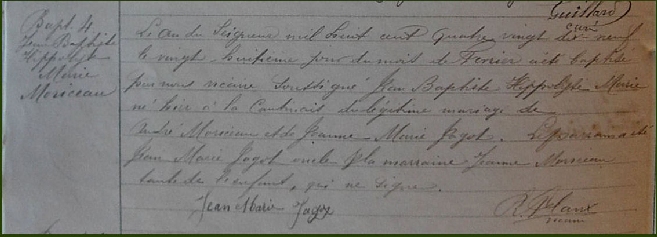 Guittard
curé
Bapt. 4
Jean Baptiste
Hippolyte
Marie
Moriceau
L'an du Seigneur mil huit cent quatre vingt dix neuf
le vingt huitième jour du mois de Février a été baptisé
par nous vicaire soussigné Jean Baptiste Hippolyte Marie
né hier à la du légitime mariage de
André Moriceau et de Jeanne Marie Jagot. Le parrain a été
Jean Marie Jagot oncle & la marraine Jeanne Moriceau
tante de l'enfant, qui ne signe.
Jean Marie Jagot
vicaire